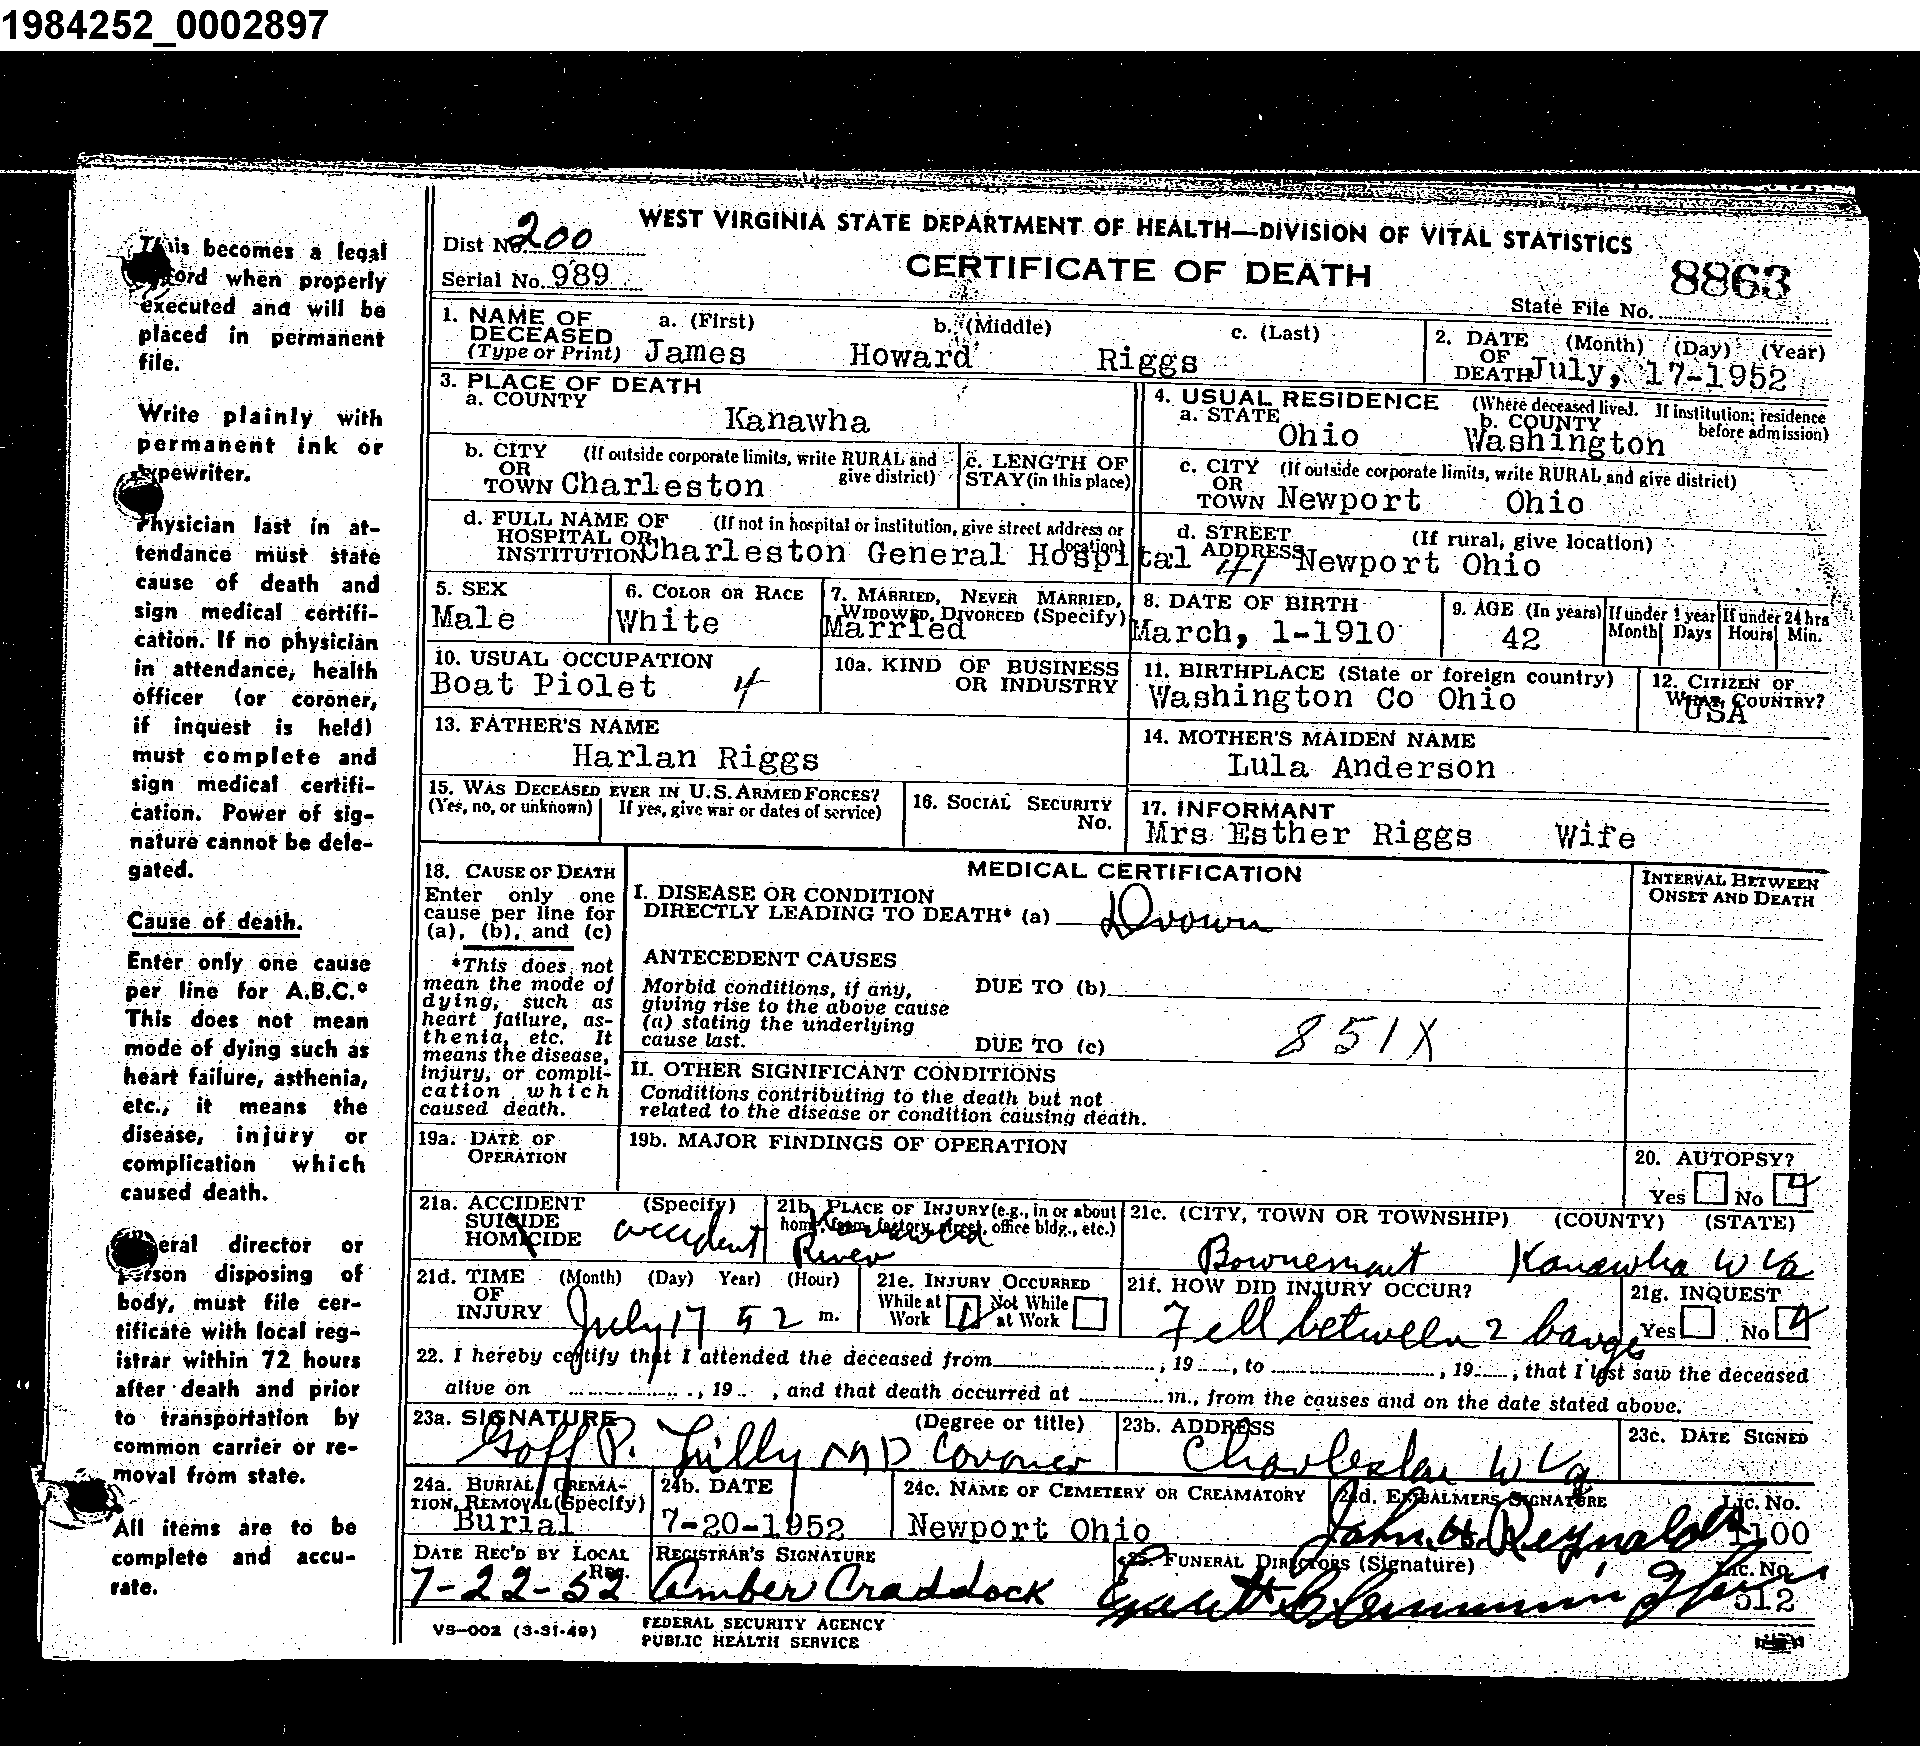 1984252_0002897
This becomes a legal
record when properly
executed and will be
placed in permanent
file.
Write plainly with
permanent ink or
typewriter.
Physician last in at-
tendance must state
cause of death and
sign medical certifi-
cation. If no physician
in attendance, health
officer (or coroner,
if inquest is held)
must complete and
sign medical certifi-
cation. Power of sig-
nature cannot be dele-
gated.
Cause of death.
Enter only one cause
per line for A.B.C.*
This does not mean
mode of dying such as
heart failure, asthenia,
etc., it means the
disease, injury or
complication which
caused death.
eral director or
person disposing of
body, must file cer-
tificate with local reg-
istrar within 72 hours
after death and prior
to transportation by
common carrier or re-
moval from state.
All items are to be
complete and accu-
rate.
WEST VIRGINIA STATE DEPARTMENT OF HEALTH—DIVISION OF VITAL STATISTICS
Dist No. 200
Serial No. 989
CERTIFICATE OF DEATH
8863
State File No.
1. NAME OF DECEASED (Type or Print)
a. (First) b. (Middle) c. (Last)
James Howard Riggs
2. DATE OF DEATH (Month) (Day) (Year)
July, 17-1952
3. PLACE OF DEATH
a. COUNTY
Kanawha
4. USUAL RESIDENCE (Where deceased lived. If institution; residence before admission)
a. STATE Ohio b. COUNTY Washington
b. CITY OR TOWN (If outside corporate limits, write RURAL and give district)
Charleston
c. LENGTH OF STAY (in this place)
c. CITY OR TOWN (If outside corporate limits, write RURAL and give district)
Newport Ohio
d. FULL NAME OF HOSPITAL OR INSTITUTION (If not in hospital or institution, give street address or location)
Charleston General Hospital
d. STREET ADDRESS (If rural, give location)
41 Newport Ohio
5. SEX
Male
6. COLOR OR RACE
White
7. MARRIED, NEVER MARRIED, WIDOWED, DIVORCED (Specify)
Married
8. DATE OF BIRTH
March, 1-1910
9. AGE (In years)
42
If under 1 year Month Days
If under 24 hrs Hours Min.
10. USUAL OCCUPATION
Boat Piolet 4
10a. KIND OF BUSINESS OR INDUSTRY
11. BIRTHPLACE (State or foreign country)
Washington Co Ohio
12. CITIZEN OF WHAT COUNTRY?
USA
13. FATHER'S NAME
Harlan Riggs
14. MOTHER'S MAIDEN NAME
Lula Anderson
15. WAS DECEASED EVER IN U.S. ARMED FORCES?
(Yes, no, or unknown) If yes, give war or dates of service)
16. SOCIAL SECURITY No.
17. INFORMANT
Mrs Esther Riggs Wife
18. CAUSE OF DEATH
Enter only one
cause per line for
(a), (b), and (c)
*This does not
mean the mode of
dying, such as
heart failure, as-
thenia, etc. It
means the disease,
injury, or compli-
cation which
caused death.
MEDICAL CERTIFICATION
INTERVAL BETWEEN ONSET AND DEATH
I. DISEASE OR CONDITION
DIRECTLY LEADING TO DEATH* (a) Drown
ANTECEDENT CAUSES
Morbid conditions, if any,
giving rise to the above cause
(a) stating the underlying
cause last.
DUE TO (b)
DUE TO (c)
851X
II. OTHER SIGNIFICANT CONDITIONS
Conditions contributing to the death but not
related to the disease or condition causing death.
19a. DATE OF OPERATION
19b. MAJOR FINDINGS OF OPERATION
20. AUTOPSY?
Yes No
21a. ACCIDENT SUICIDE HOMICIDE (Specify)
accident
21b. PLACE OF INJURY (e.g., in or about home, farm, factory, street, office bldg., etc.)
Kanawha
River
21c. (CITY, TOWN OR TOWNSHIP) (COUNTY) (STATE)
Kanawha W Va
21d. TIME OF INJURY (Month) (Day) Year) (Hour)
July 17 52 m.
21e. INJURY OCCURRED
While at Work Not While at Work
21f. HOW DID INJURY OCCUR?
Fell between 2 barges
21g. INQUEST
Yes No
22. I hereby certify that I attended the deceased from , 19 , to , 19 , that I last saw the deceased
alive on , 19 , and that death occurred at m., from the causes and on the date stated above.
23a. SIGNATURE (Degree or title)
Goff P. Lilly MD Coroner
23b. ADDRESS
Charleston W Va
23c. DATE SIGNED
24a. BURIAL, CREMATION, REMOVAL (Specify)
Burial
24b. DATE
7-20-1952
24c. NAME OF CEMETERY OR CREAMATORY
Newport Ohio
24d. EMBALMERS SIGNATURE Lic. No.
John H. Reynolds
DATE REC'D BY LOCAL REG.
7-22-52
REGISTRAR'S SIGNATURE
Amber Craddock
25. FUNERAL DIRECTORS (Signature) Lic. No.
512
VS-002 (3-31-49)
FEDERAL SECURITY AGENCY
PUBLIC HEALTH SERVICE